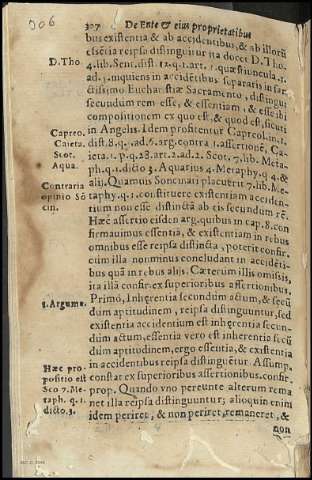 306
307 De Ente & eius proprietatibus
bus existentia & ab accidentibus, & ab illorũ
essẽtia reipsa distinguitur ita docet D. Tho.
D. Tho. 4. lib. Sent. dist. 12. q. 1. art. 1. quæstiuncula. 1.
ad. 5. inquiens in accidẽtibus separatis in san-
ctissimo Eucharistiæ Sacramento, distingui
secundum rem esse, & essentiam, & esse ibi
compositionem ex quo est, & quod est, sicuti
Capreo. in Angelis. Idem profitentur Capreol. in. 1.
Caieta. dist. 8. q. 1. ad. 6. arg. contra. 1. assertionẽ, Ca-
Scot. ieta. 1. p. q. 28. art. 2. ad. 2. Scot. 7. lib. Meta-
Aqua. ph. q. 1. dicto 3. Aquarius 4. Metaphy. q 4. &
Contraria alij. Quamuis Soncinati placuerit 7. lib. Me-
opinio Sõ taphy. q. 1. constituere existentiam acciden-
cin. tium non esse distinctã ab eis secundum rẽ.
Hæc assertio eisdẽ arg. quibus in cap. 8. con
firmauimus essentiã, & existentiam in rebus
omnibus esse reipsa distincta, poterit confir.
etim illa non minus concludant in accidẽti-
bus quã in rebus alijs. Cæterùm illis omissis,
ita illã confir. ex superioribus assertionibus.
1. Argume. Primò, Inhęrentia secundùm actum, & secũ
dum aptitudinem, reipsa distinguuntur, sed
existentia accidentium est inherentia secun-
dum actum, essentia vero est inherentia secũ
dùm aptitudinem, ergo essentia, & existentia
Hæc pro in accidentibus reipsa distinguẽtur. Assump.
positio est constat ex superioribus assertionibus. confir.
Sco 7. Me- prop. Quando vno pereunte alterum rema
taph. q. 1. net illa reipsa distinguuntur; alioquin enim
dicto. 3. idem periret, & non periret, remaneret, &
non